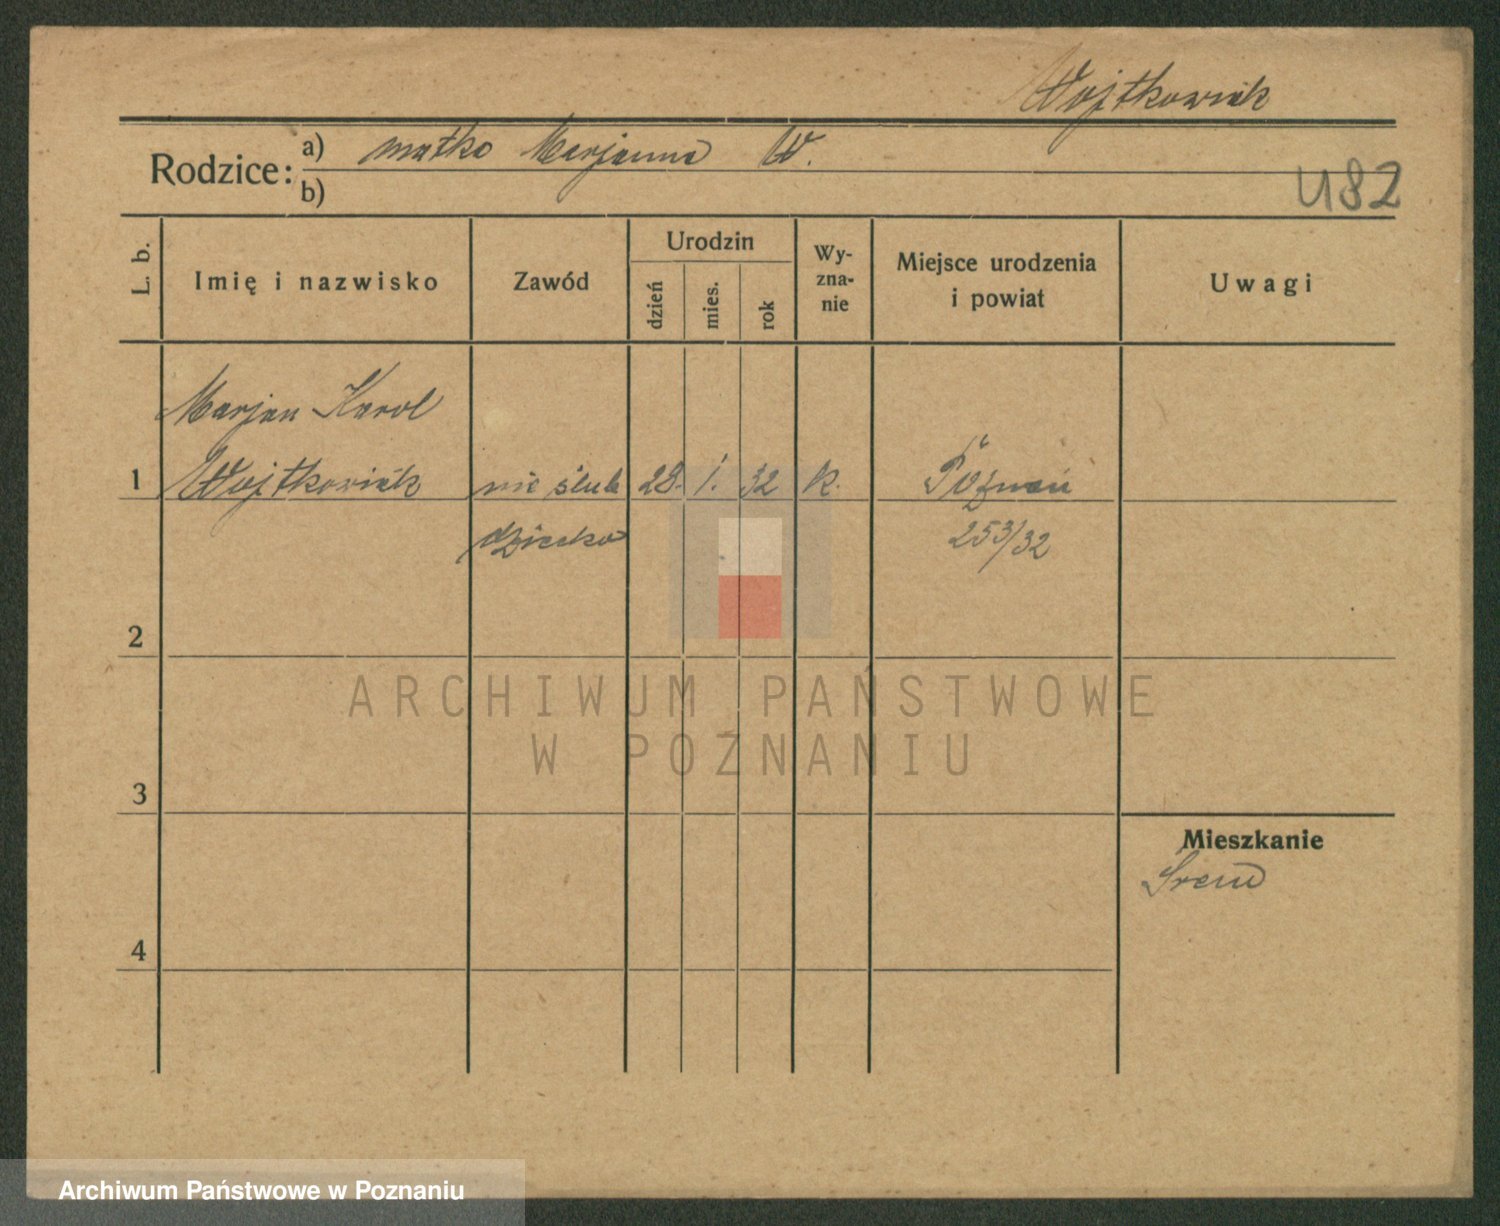 Wojtkowiak
Rodzice:
a) matka Marjanna W.
b)
482
L. b.
Imię i nazwisko
Zawód
Urodzin
dzień
mies.
rok
Wy-
zna-
nie
Miejsce urodzenia
i powiat
Uwagi
Marjan Karol
1 Wojtkowiak nie ślub 28. 1. 32 k. Poznań
dziecko 253/32
2
3
4
Mieszkanie
Śrem
ARCHIWUM PAŃSTWOWE
W POZNANIU
Archiwum Państwowe w Poznaniu